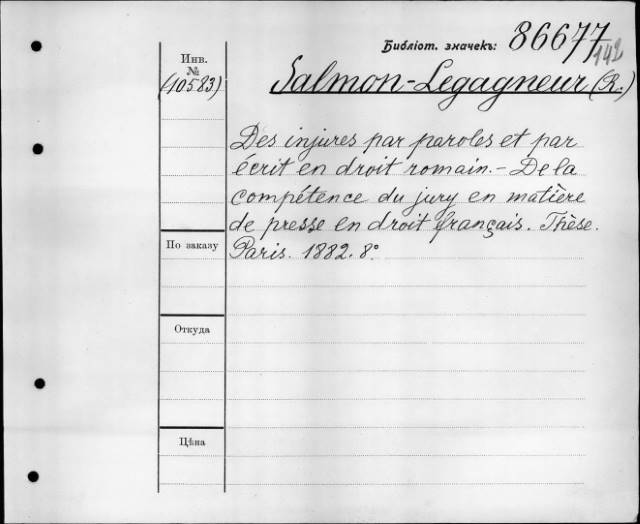 Библіот. значекъ: 86677
142
Инв.
№
(10583)
Salmon-Legagneur (R.)
Des injures par paroles et par
écrit en droit romain. - De la
compétence du jury en matière
de presse en droit français. Thèse.
Paris. 1882. 8°
По заказу
Откуда
Цѣна